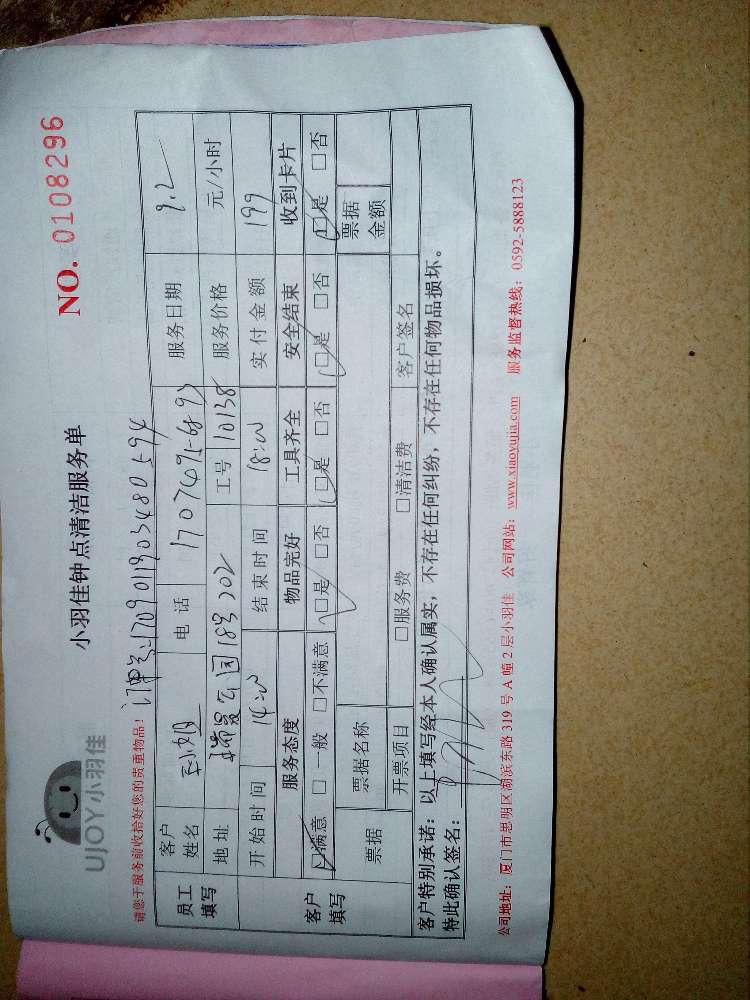 UJOY小羽佳
小羽佳钟点清洁服务单
NO. 0108296
请您于服务前收拾好您的贵重物品!
员工填写
客户姓名
电话
服务日期 9.2
地址 18号202
工号 10138
服务价格 元/小时
开始时间 14:00
结束时间 18:00
实付金额 199
客户填写
服务态度 物品完好 工具齐全 安全结束 收到卡片
□满意 □一般 □不满意 □是 □否 □是 □否 □是 □否 □是 □否
票据
票据名称
票据金额
开票项目 □服务费 □清洁费
客户签名
客户特别承诺:以上填写经本人确认属实,不存在任何纠纷,不存在任何物品损坏。
特此确认签名:
公司地址:厦门市思明区湖滨东路 319 号 A 幢 2 层小羽佳 公司网站:www.xiaoyujia.com 服务监督热线:0592-5888123